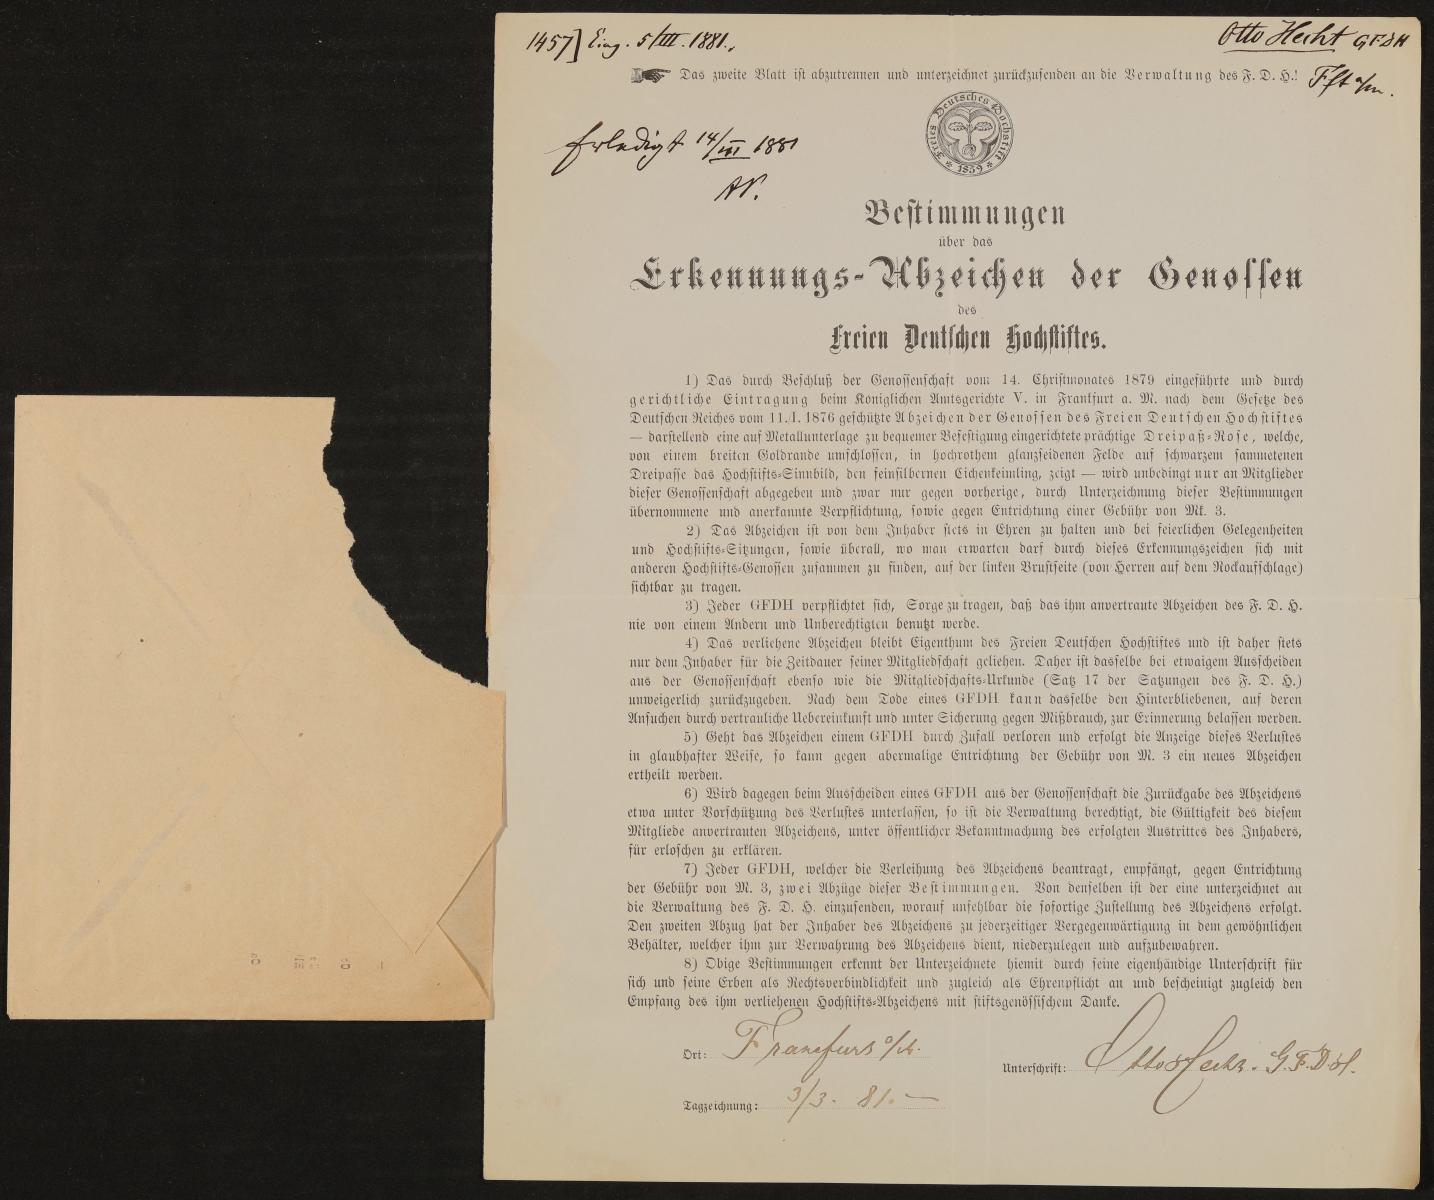 1457] Eing. 5/III. 1881.
Otto Hecht GFDH
Das zweite Blatt ist abzutrennen und unterzeichnet zurückzusenden an die Verwaltung des F. D. H.!
Fft a/m.
Freies Deutsches Hochstift
1859
Erledigt 14/III 1881
Bestimmungen
über das
Erkennungs-Abzeichen der Genossen
des
Freien Deutschen Hochstiftes.
1) Das durch Beschluß der Genossenschaft vom 14. Christmonates 1879 eingeführte und durch
gerichtliche Eintragung beim Königlichen Amtsgerichte V. in Frankfurt a. M. nach dem Gesetze des
Deutschen Reiches vom 11./I. 1876 geschützte Abzeichen der Genossen des Freien Deutschen Hochstiftes
— darstellend eine auf Metallunterlage zu bequemer Befestigung eingerichtete prächtige Dreipaß-Rose, welche,
von einem breiten Goldrande umschlossen, in hochrothem glanzseidenen Felde auf schwarzem sammetenen
Dreipasse das Hochstifts-Sinnbild, den feinsilbernen Eichenkeimling, zeigt — wird unbedingt nur an Mitglieder
dieser Genossenschaft abgegeben und zwar nur gegen vorherige, durch Unterzeichnung dieser Bestimmungen
übernommene und anerkannte Verpflichtung, sowie gegen Entrichtung einer Gebühr von Mk. 3.
2) Das Abzeichen ist von dem Inhaber stets in Ehren zu halten und bei feierlichen Gelegenheiten
und Hochstifts-Sitzungen, sowie überall, wo man erwarten darf durch dieses Erkennungszeichen sich mit
anderen Hochstifts-Genossen zusammen zu finden, auf der linken Brustseite (von Herren auf dem Rockaufschlage)
sichtbar zu tragen.
3) Jeder GFDH verpflichtet sich, Sorge zu tragen, daß das ihm anvertraute Abzeichen des F. D. H.
nie von einem Andern und Unberechtigten benutzt werde.
4) Das verliehene Abzeichen bleibt Eigenthum des Freien Deutschen Hochstiftes und ist daher stets
nur dem Inhaber für die Zeitdauer seiner Mitgliedschaft geliehen. Daher ist dasselbe bei etwaigem Ausscheiden
aus der Genossenschaft ebenso wie die Mitgliedschafts-Urkunde (Satz 17 der Satzungen des F. D. H.)
unweigerlich zurückzugeben. Nach dem Tode eines GFDH kann dasselbe den Hinterbliebenen, auf deren
Ansuchen durch vertrauliche Uebereinkunft und unter Sicherung gegen Mißbrauch, zur Erinnerung belassen werden.
5) Geht das Abzeichen einem GFDH durch Zufall verloren und erfolgt die Anzeige dieses Verlustes
in glaubhafter Weise, so kann gegen abermalige Entrichtung der Gebühr von M. 3 ein neues Abzeichen
ertheilt werden.
6) Wird dagegen beim Ausscheiden eines GFDH aus der Genossenschaft die Zurückgabe des Abzeichens
etwa unter Vorschützung des Verlustes unterlassen, so ist die Verwaltung berechtigt, die Gültigkeit des diesem
Mitgliede anvertrauten Abzeichens, unter öffentlicher Bekanntmachung des erfolgten Austrittes des Inhabers,
für erloschen zu erklären.
7) Jeder GFDH, welcher die Verleihung des Abzeichens beantragt, empfängt, gegen Entrichtung
der Gebühr von M. 3, zwei Abzüge dieser Bestimmungen. Von denselben ist der eine unterzeichnet an
die Verwaltung des F. D. H. einzusenden, worauf unfehlbar die sofortige Zustellung des Abzeichens erfolgt.
Den zweiten Abzug hat der Inhaber des Abzeichens zu jederzeitiger Vergegenwärtigung in dem gewöhnlichen
Behälter, welcher ihm zur Verwahrung des Abzeichens dient, niederzulegen und aufzubewahren.
8) Obige Bestimmungen erkennt der Unterzeichnete hiemit durch seine eigenhändige Unterschrift für
sich und seine Erben als Rechtsverbindlichkeit und zugleich als Ehrenpflicht an und bescheinigt zugleich den
Empfang des ihm verliehenen Hochstifts-Abzeichens mit stiftsgenössischem Danke.
Ort: Frankfurt a/M.
Unterschrift: Otto Hecht. G.F.D.H.
Tagzeichnung: 3/3. 81.—